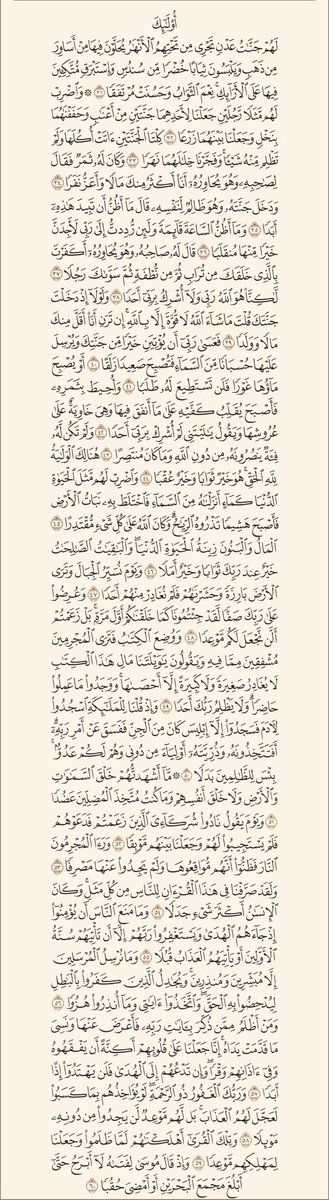 أُوْلَٰٓئِكَ
لَهُمْ جَنَّٰتُ عَدْنٍ تَجْرِي مِن تَحْتِهِمُ ٱلْأَنْهَٰرُ يُحَلَّوْنَ فِيهَا مِنْ أَسَاوِرَ
مِن ذَهَبٍ وَيَلْبَسُونَ ثِيَابًا خُضْرًا مِّن سُندُسٍ وَإِسْتَبْرَقٍ مُّتَّكِـِٔينَ
فِيهَا عَلَى ٱلْأَرَآئِكِ نِعْمَ ٱلثَّوَابُ وَحَسُنَتْ مُرْتَفَقًا ٣١ ۞ وَٱضْرِبْ
لَهُم مَّثَلًا رَّجُلَيْنِ جَعَلْنَا لِأَحَدِهِمَا جَنَّتَيْنِ مِنْ أَعْنَٰبٍ وَحَفَفْنَٰهُمَا
بِنَخْلٍ وَجَعَلْنَا بَيْنَهُمَا زَرْعًا ٣٢ كِلْتَا ٱلْجَنَّتَيْنِ ءَاتَتْ أُكُلَهَا وَلَمْ
تَظْلِم مِّنْهُ شَيْـًٔا وَفَجَّرْنَا خِلَٰلَهُمَا نَهَرًا ٣٣ وَكَانَ لَهُۥ ثَمَرٌ فَقَالَ
لِصَٰحِبِهِۦ وَهُوَ يُحَاوِرُهُۥٓ أَنَا۠ أَكْثَرُ مِنكَ مَالًا وَأَعَزُّ نَفَرًا ٣٤
وَدَخَلَ جَنَّتَهُۥ وَهُوَ ظَالِمٌ لِّنَفْسِهِۦ قَالَ مَآ أَظُنُّ أَن تَبِيدَ هَٰذِهِۦٓ
أَبَدًا ٣٥ وَمَآ أَظُنُّ ٱلسَّاعَةَ قَآئِمَةً وَلَئِن رُّدِدتُّ إِلَىٰ رَبِّي لَأَجِدَنَّ
خَيْرًا مِّنْهَا مُنقَلَبًا ٣٦ قَالَ لَهُۥ صَاحِبُهُۥ وَهُوَ يُحَاوِرُهُۥٓ أَكَفَرْتَ
بِٱلَّذِي خَلَقَكَ مِن تُرَابٍ ثُمَّ مِن نُّطْفَةٍ ثُمَّ سَوَّىٰكَ رَجُلًا ٣٧
لَّٰكِنَّا۠ هُوَ ٱللَّهُ رَبِّي وَلَآ أُشْرِكُ بِرَبِّيٓ أَحَدًا ٣٨ وَلَوْلَآ إِذْ دَخَلْتَ
جَنَّتَكَ قُلْتَ مَا شَآءَ ٱللَّهُ لَا قُوَّةَ إِلَّا بِٱللَّهِ إِن تَرَنِ أَنَا۠ أَقَلَّ مِنكَ
مَالًا وَوَلَدًا ٣٩ فَعَسَىٰ رَبِّيٓ أَن يُؤْتِيَنِ خَيْرًا مِّن جَنَّتِكَ وَيُرْسِلَ
عَلَيْهَا حُسْبَانًا مِّنَ ٱلسَّمَآءِ فَتُصْبِحَ صَعِيدًا زَلَقًا ٤٠ أَوْ يُصْبِحَ
مَآؤُهَا غَوْرًا فَلَن تَسْتَطِيعَ لَهُۥ طَلَبًا ٤١ وَأُحِيطَ بِثَمَرِهِۦ
فَأَصْبَحَ يُقَلِّبُ كَفَّيْهِ عَلَىٰ مَآ أَنفَقَ فِيهَا وَهِيَ خَاوِيَةٌ عَلَىٰ
عُرُوشِهَا وَيَقُولُ يَٰلَيْتَنِي لَمْ أُشْرِكْ بِرَبِّيٓ أَحَدًا ٤٢ وَلَمْ تَكُن لَّهُۥ
فِئَةٌ يَنصُرُونَهُۥ مِن دُونِ ٱللَّهِ وَمَا كَانَ مُنتَصِرًا ٤٣ هُنَالِكَ ٱلْوَلَٰيَةُ
لِلَّهِ ٱلْحَقِّ هُوَ خَيْرٌ ثَوَابًا وَخَيْرٌ عُقْبًا ٤٤ وَٱضْرِبْ لَهُم مَّثَلَ ٱلْحَيَوٰةِ
ٱلدُّنْيَا كَمَآءٍ أَنزَلْنَٰهُ مِنَ ٱلسَّمَآءِ فَٱخْتَلَطَ بِهِۦ نَبَاتُ ٱلْأَرْضِ
فَأَصْبَحَ هَشِيمًا تَذْرُوهُ ٱلرِّيَٰحُ وَكَانَ ٱللَّهُ عَلَىٰ كُلِّ شَيْءٍ مُّقْتَدِرًا ٤٥
ٱلْمَالُ وَٱلْبَنُونَ زِينَةُ ٱلْحَيَوٰةِ ٱلدُّنْيَا وَٱلْبَٰقِيَٰتُ ٱلصَّٰلِحَٰتُ
خَيْرٌ عِندَ رَبِّكَ ثَوَابًا وَخَيْرٌ أَمَلًا ٤٦ وَيَوْمَ نُسَيِّرُ ٱلْجِبَالَ وَتَرَى
ٱلْأَرْضَ بَارِزَةً وَحَشَرْنَٰهُمْ فَلَمْ نُغَادِرْ مِنْهُمْ أَحَدًا ٤٧ وَعُرِضُوا۟
عَلَىٰ رَبِّكَ صَفًّا لَّقَدْ جِئْتُمُونَا كَمَا خَلَقْنَٰكُمْ أَوَّلَ مَرَّةٍۭ بَلْ زَعَمْتُمْ
أَلَّن نَّجْعَلَ لَكُم مَّوْعِدًا ٤٨ وَوُضِعَ ٱلْكِتَٰبُ فَتَرَى ٱلْمُجْرِمِينَ
مُشْفِقِينَ مِمَّا فِيهِ وَيَقُولُونَ يَٰوَيْلَتَنَا مَالِ هَٰذَا ٱلْكِتَٰبِ
لَا يُغَادِرُ صَغِيرَةً وَلَا كَبِيرَةً إِلَّآ أَحْصَىٰهَا وَوَجَدُوا۟ مَا عَمِلُوا۟
حَاضِرًا وَلَا يَظْلِمُ رَبُّكَ أَحَدًا ٤٩ وَإِذْ قُلْنَا لِلْمَلَٰٓئِكَةِ ٱسْجُدُوا۟
لِأٓدَمَ فَسَجَدُوٓا۟ إِلَّآ إِبْلِيسَ كَانَ مِنَ ٱلْجِنِّ فَفَسَقَ عَنْ أَمْرِ رَبِّهِۦٓ
أَفَتَتَّخِذُونَهُۥ وَذُرِّيَّتَهُۥٓ أَوْلِيَآءَ مِن دُونِي وَهُمْ لَكُمْ عَدُوٌّۢ
بِئْسَ لِلظَّٰلِمِينَ بَدَلًا ٥٠ ۞ مَّآ أَشْهَدتُّهُمْ خَلْقَ ٱلسَّمَٰوَٰتِ
وَٱلْأَرْضِ وَلَا خَلْقَ أَنفُسِهِمْ وَمَا كُنتُ مُتَّخِذَ ٱلْمُضِلِّينَ عَضُدًا
٥١ وَيَوْمَ يَقُولُ نَادُوا۟ شُرَكَآءِيَ ٱلَّذِينَ زَعَمْتُمْ فَدَعَوْهُمْ
فَلَمْ يَسْتَجِيبُوا۟ لَهُمْ وَجَعَلْنَا بَيْنَهُم مَّوْبِقًا ٥٢ وَرَءَا ٱلْمُجْرِمُونَ
ٱلنَّارَ فَظَنُّوٓا۟ أَنَّهُم مُّوَاقِعُوهَا وَلَمْ يَجِدُوا۟ عَنْهَا مَصْرِفًا ٥٣
وَلَقَدْ صَرَّفْنَا فِي هَٰذَا ٱلْقُرْءَانِ لِلنَّاسِ مِن كُلِّ مَثَلٍ وَكَانَ
ٱلْإِنسَٰنُ أَكْثَرَ شَيْءٍ جَدَلًا ٥٤ وَمَا مَنَعَ ٱلنَّاسَ أَن يُؤْمِنُوٓا۟
إِذْ جَآءَهُمُ ٱلْهُدَىٰ وَيَسْتَغْفِرُوا۟ رَبَّهُمْ إِلَّآ أَن تَأْتِيَهُمْ سُنَّةُ
ٱلْأَوَّلِينَ أَوْ يَأْتِيَهُمُ ٱلْعَذَابُ قُبُلًا ٥٥ وَمَا نُرْسِلُ ٱلْمُرْسَلِينَ
إِلَّا مُبَشِّرِينَ وَمُنذِرِينَ وَيُجَٰدِلُ ٱلَّذِينَ كَفَرُوا۟ بِٱلْبَٰطِلِ
لِيُدْحِضُوا۟ بِهِ ٱلْحَقَّ وَٱتَّخَذُوٓا۟ ءَايَٰتِي وَمَآ أُنذِرُوا۟ هُزُوًا ٥٦
وَمَنْ أَظْلَمُ مِمَّن ذُكِّرَ بِـَٔايَٰتِ رَبِّهِۦ فَأَعْرَضَ عَنْهَا وَنَسِيَ
مَا قَدَّمَتْ يَدَاهُ إِنَّا جَعَلْنَا عَلَىٰ قُلُوبِهِمْ أَكِنَّةً أَن يَفْقَهُوهُ
وَفِيٓ ءَاذَانِهِمْ وَقْرًا وَإِن تَدْعُهُمْ إِلَى ٱلْهُدَىٰ فَلَن يَهْتَدُوٓا۟ إِذًا
أَبَدًا ٥٧ وَرَبُّكَ ٱلْغَفُورُ ذُو ٱلرَّحْمَةِ لَوْ يُؤَاخِذُهُم بِمَا كَسَبُوا۟
لَعَجَّلَ لَهُمُ ٱلْعَذَابَ بَل لَّهُم مَّوْعِدٌ لَّن يَجِدُوا۟ مِن دُونِهِۦ
مَوْئِلًا ٥٨ وَتِلْكَ ٱلْقُرَىٰٓ أَهْلَكْنَٰهُمْ لَمَّا ظَلَمُوا۟ وَجَعَلْنَا
لِمَهْلِكِهِم مَّوْعِدًا ٥٩ وَإِذْ قَالَ مُوسَىٰ لِفَتَىٰهُ لَآ أَبْرَحُ حَتَّىٰٓ
أَبْلُغَ مَجْمَعَ ٱلْبَحْرَيْنِ أَوْ أَمْضِيَ حُقُبًا ٦٠